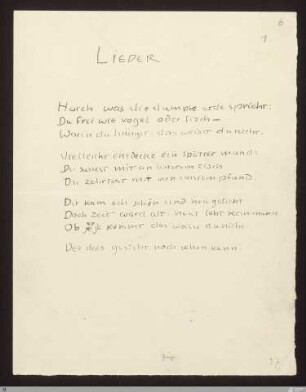 6
1
LIEDER
Horch was die dumpfe erde spricht:
Du frei wie vogel oder fisch –
Worin du hängst · das weisst du nicht.
Vielleicht entdeckt ein spätrer mund:
Du sassest mit an unsrem tisch
Du zehrtest mit von unsrem pfund.
Dir kam ein schön und neu gesicht
Doch zeit ward alt · heut lebt kein mann
Ob er je kommt das weisst du nicht
Der dies gesicht noch sehen kann.